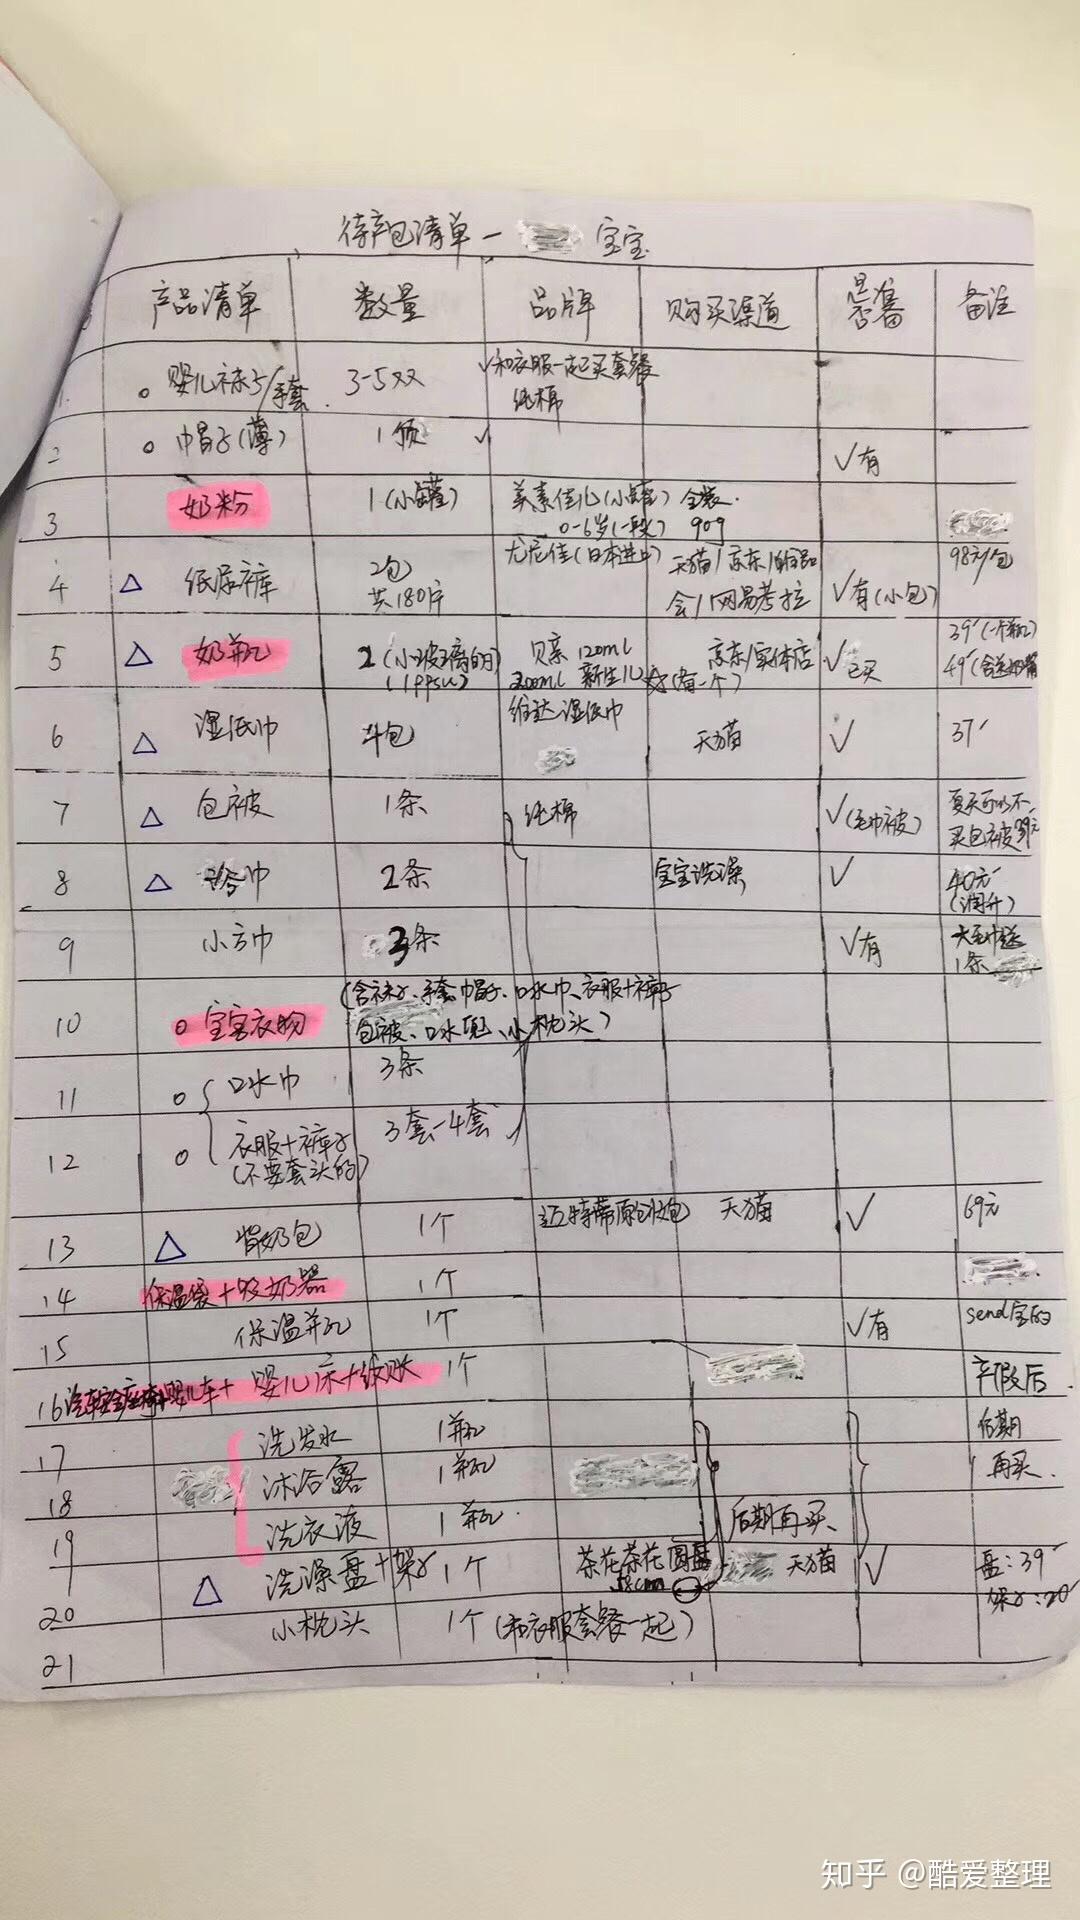 待产包清单－ 宝宝
产品清单 数量 品牌 购买渠道 是否备 备注
1. 婴儿袜子/手套 3-5双 √和衣服一起买套餐
纯棉
2 帽子(薄) 1顶 √ √有
3 奶粉 1(小罐) 美素佳儿(小罐)金装.
0-6岁(一段) 90g
4 △ 纸尿裤 2包 尤尼佳(日本进口) 天猫/京东/ √有(小包) 98元/包
共180片 会/网易考拉
5 △ 奶瓶 2(小玻璃的) 贝亲 120mL 京东/实体店 √已买 39(一个奶瓶)
(1PPSU) 200mL 新生儿 (有一个) 49(含送奶嘴
6 △ 湿纸巾 4包 维达湿纸巾 天猫 √ 37
7 △ 包被 1条 纯棉 √(毛巾被) 夏天可以不
买包被 39元
8 △ 浴巾 2条 宝宝洗澡 √ 40元
9 小方巾 3条 √有 大毛巾送
1条
10 宝宝衣物 (含袜子、手套、帽子、口水巾、衣服+裤子
包被、口水兜、小枕头)
11 口水巾 3条
12 衣服+裤子 3套-4套
(不要套头的)
13 △ 背奶包 1个 迈特蒂原创妈包 天猫 √ 69元
14 保温袋+吸奶器 1个
15 保温瓶 1个 √有 send宝的
16 汽车安全座椅+婴儿车+ 婴儿床+蚊帐 1个 产假后
17 洗发水 1瓶 后期
18 沐浴露 1瓶 再买.
19 洗衣液 1瓶 后期再买
20 △ 洗澡盘+架子 1个 茶花茶花圆盘 天猫 √ 盘:39
58cm 架子:20
21 小枕头 1个(和衣服套餐一起)
知乎 @酷爱整理